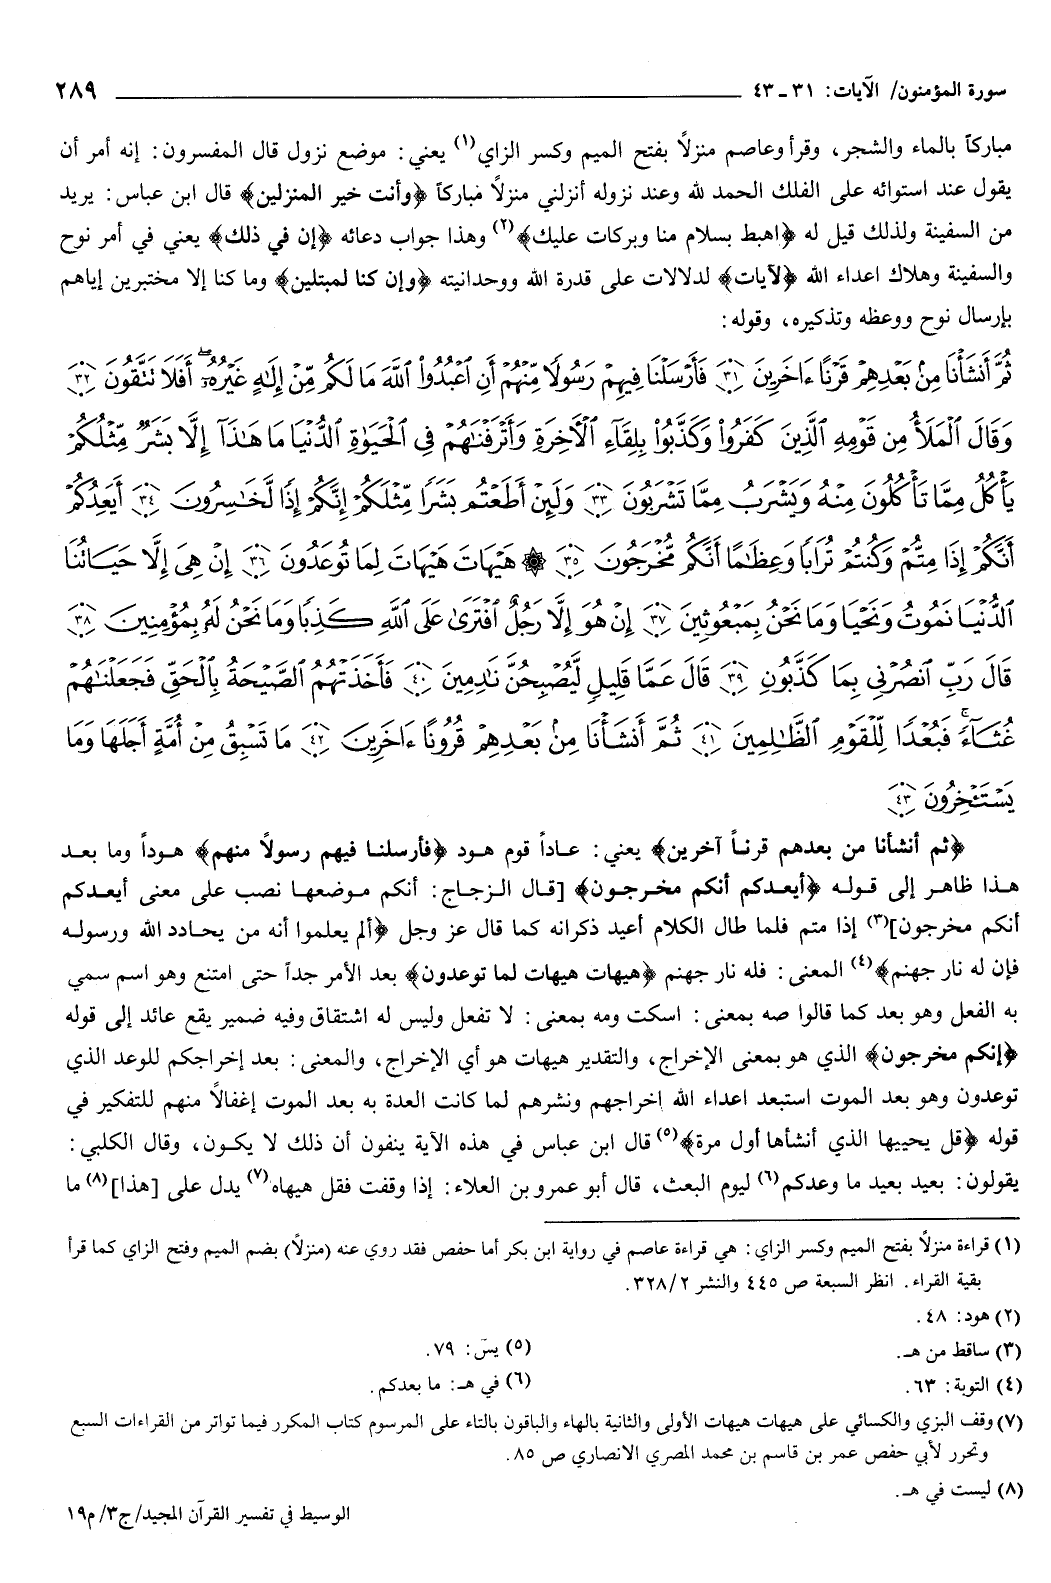 سورة المؤمنون/ الآيات: ٣١ ـ ٤٣ ٢٨٩
مباركاً بالماء والشجر، وقرأ وعاصم منزلاً بفتح الميم وكسر الزاي(١) يعني: موضع نزول قال المفسرون: إنه أمر أن
يقول عند استوائه على الفلك الحمد لله وعند نزوله أنزلني منزلاً مباركاً ﴿وأنت خير المنزلين﴾ قال ابن عباس: يريد
من السفينة ولذلك قيل له ﴿اهبط بسلام منا وبركات عليك﴾(٢) وهذا جواب دعائه ﴿إن في ذلك﴾ يعني في أمر نوح
والسفينة وهلاك اعداء الله ﴿لآيات﴾ لدلالات على قدرة الله ووحدانيته ﴿وإن كنا لمبتلين﴾ وما كنا إلا مختبرين إياهم
بإرسال نوح ووعظه وتذكيره، وقوله:
ثُمَّ أَنشَأْنَا مِنۢ بَعْدِهِمْ قَرْنًا ءَاخَرِينَ ﴿٣١﴾ فَأَرْسَلْنَا فِيهِمْ رَسُولًا مِّنْهُمْ أَنِ ٱعْبُدُوا۟ ٱللَّهَ مَا لَكُم مِّنْ إِلَٰهٍ غَيْرُهُۥٓ ۖ أَفَلَا تَتَّقُونَ ﴿٣٢﴾
وَقَالَ ٱلْمَلَأُ مِن قَوْمِهِ ٱلَّذِينَ كَفَرُوا۟ وَكَذَّبُوا۟ بِلِقَآءِ ٱلْأَخِرَةِ وَأَتْرَفْنَٰهُمْ فِى ٱلْحَيَوٰةِ ٱلدُّنْيَا مَا هَٰذَآ إِلَّا بَشَرٌ مِّثْلُكُمْ
يَأْكُلُ مِمَّا تَأْكُلُونَ مِنْهُ وَيَشْرَبُ مِمَّا تَشْرَبُونَ ﴿٣٣﴾ وَلَئِنْ أَطَعْتُم بَشَرًا مِّثْلَكُمْ إِنَّكُمْ إِذًا لَّخَٰسِرُونَ ﴿٣٤﴾ أَيَعِدُكُمْ
أَنَّكُمْ إِذَا مِتُّمْ وَكُنتُمْ تُرَابًا وَعِظَٰمًا أَنَّكُم مُّخْرَجُونَ ﴿٣٥﴾ ۞ هَيْهَاتَ هَيْهَاتَ لِمَا تُوعَدُونَ ﴿٣٦﴾ إِنْ هِىَ إِلَّا حَيَاتُنَا
ٱلدُّنْيَا نَمُوتُ وَنَحْيَا وَمَا نَحْنُ بِمَبْعُوثِينَ ﴿٣٧﴾ إِنْ هُوَ إِلَّا رَجُلٌ ٱفْتَرَىٰ عَلَى ٱللَّهِ كَذِبًا وَمَا نَحْنُ لَهُۥ بِمُؤْمِنِينَ ﴿٣٨﴾
قَالَ رَبِّ ٱنصُرْنِى بِمَا كَذَّبُونِ ﴿٣٩﴾ قَالَ عَمَّا قَلِيلٍ لَّيُصْبِحُنَّ نَٰدِمِينَ ﴿٤٠﴾ فَأَخَذَتْهُمُ ٱلصَّيْحَةُ بِٱلْحَقِّ فَجَعَلْنَٰهُمْ
غُثَآءً ۚ فَبُعْدًا لِّلْقَوْمِ ٱلظَّٰلِمِينَ ﴿٤١﴾ ثُمَّ أَنشَأْنَا مِنۢ بَعْدِهِمْ قُرُونًا ءَاخَرِينَ ﴿٤٢﴾ مَا تَسْبِقُ مِنْ أُمَّةٍ أَجَلَهَا وَمَا
يَسْتَـْٔخِرُونَ ﴿٤٣﴾
﴿ثم أنشأنا من بعدهم قرناً آخرين﴾ يعني: عاداً قوم هود ﴿فأرسلنا فيهم رسولاً منهم﴾ هوداً وما بعد
هذا ظاهر إلى قوله ﴿أيعدكم أنكم مخرجون﴾ [قال الزجاج: أنكم موضعها نصب على معنى أيعدكم
أنكم مخرجون](٣) إذا متم فلما طال الكلام أعيد ذكرانه كما قال عز وجل ﴿ألم يعلموا أنه من يحادد الله ورسوله
فإن له نار جهنم﴾(٤) المعنى: فله نار جهنم ﴿هيهات هيهات لما توعدون﴾ بعد الأمر جداً حتى امتنع وهو اسم سمي
به الفعل وهو بعد كما قالوا صه بمعنى: اسكت ومه بمعنى: لا تفعل وليس له اشتقاق وفيه ضمير يقع عائد إلى قوله
﴿إنكم مخرجون﴾ الذي هو بمعنى الإخراج، والتقدير هيهات هو أي الإخراج، والمعنى: بعد إخراجكم للوعد الذي
توعدون وهو بعد الموت استبعد اعداء الله اخراجهم ونشرهم لما كانت العدة به بعد الموت إغفالاً منهم للتفكير في
قوله ﴿قل يحييها الذي أنشأها أول مرة﴾(٥) قال ابن عباس في هذه الآية ينفون أن ذلك لا يكون، وقال الكلبي:
يقولون: بعيد بعيد ما وعدكم(٦) ليوم البعث، قال أبو عمرو بن العلاء: إذا وقفت فقل هيهاه(٧) يدل على [هذا](٨) ما
(١) قراءة منزلاً بفتح الميم وكسر الزاي: هي قراءة عاصم في رواية ابن بكر أما حفص فقد روي عنه (منزلاً) بضم الميم وفتح الزاي كما قرأ
بقية القراء. انظر السبعة ص ٤٤٥ والنشر ٣٢٨/٢.
(٢) هود: ٤٨.
(٣) ساقط من هـ. (٥) يسَ: ٧٩.
(٤) التوبة: ٦٣. (٦) في هـ: ما بعدكم.
(٧) وقف البزي والكسائي على هيهات هيهات الأولى والثانية بالهاء والباقون بالتاء على المرسوم كتاب المكرر فيما تواتر من القراءات السبع
وتحرر لأبي حفص عمر بن قاسم بن محمد المصري الانصاري ص ٨٥.
(٨) ليست في هـ.
الوسيط في تفسير القرآن المجيد/ ج٣/ م١٩